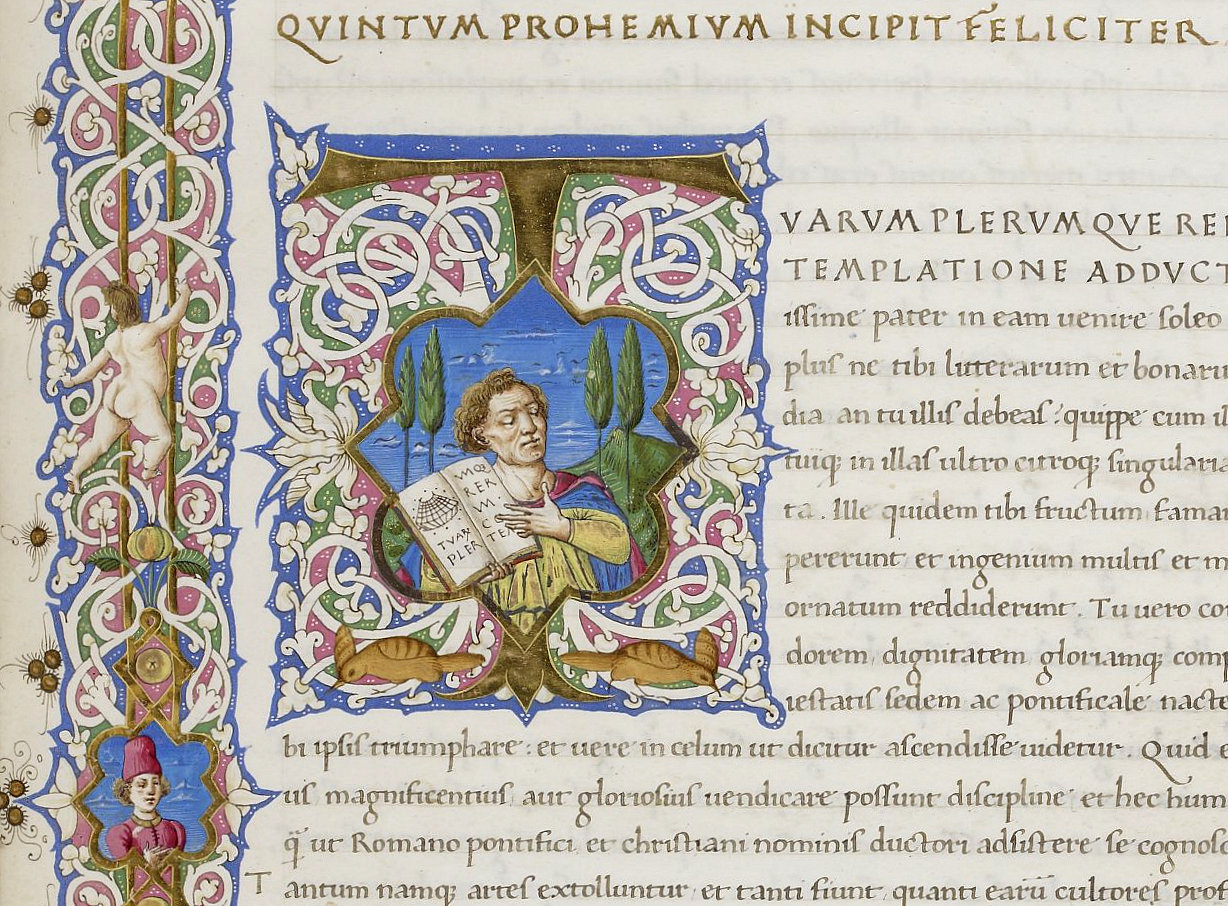 QVINTVM PROHEMIVM INCIPIT FELICITER
T
VARVM PLERVMQVE RE
TEMPLATIONE ADDVCT
issime pater in eam uenire soleo
plus ne tibi litterarum et bonaru
dia an tu illis debeas? quippe cum
tuiq; in illas ultro citroq; singularia
ta. Ille quidem tibi fructum famam
pererunt et ingenium multis et m
ornatum reddiderunt. Tu uero co
dorem, dignitatem gloriamq; comp
iestatis sedem ac pontificale nacte
bi ipsis triumphare: et uere in celum ut dicitur ascendisse uidetur. Quid e
uis magnificentius, aut gloriosius uendicare possunt discipline et hec hum
q̃ ut Romano pontifici, et christiani nominis ductori adsistere se cognosc
T antum namq; artes extolluntur, et tanti fiunt, quanti earū cultores prof
MQVE
RER
TVARV
PLER
TE